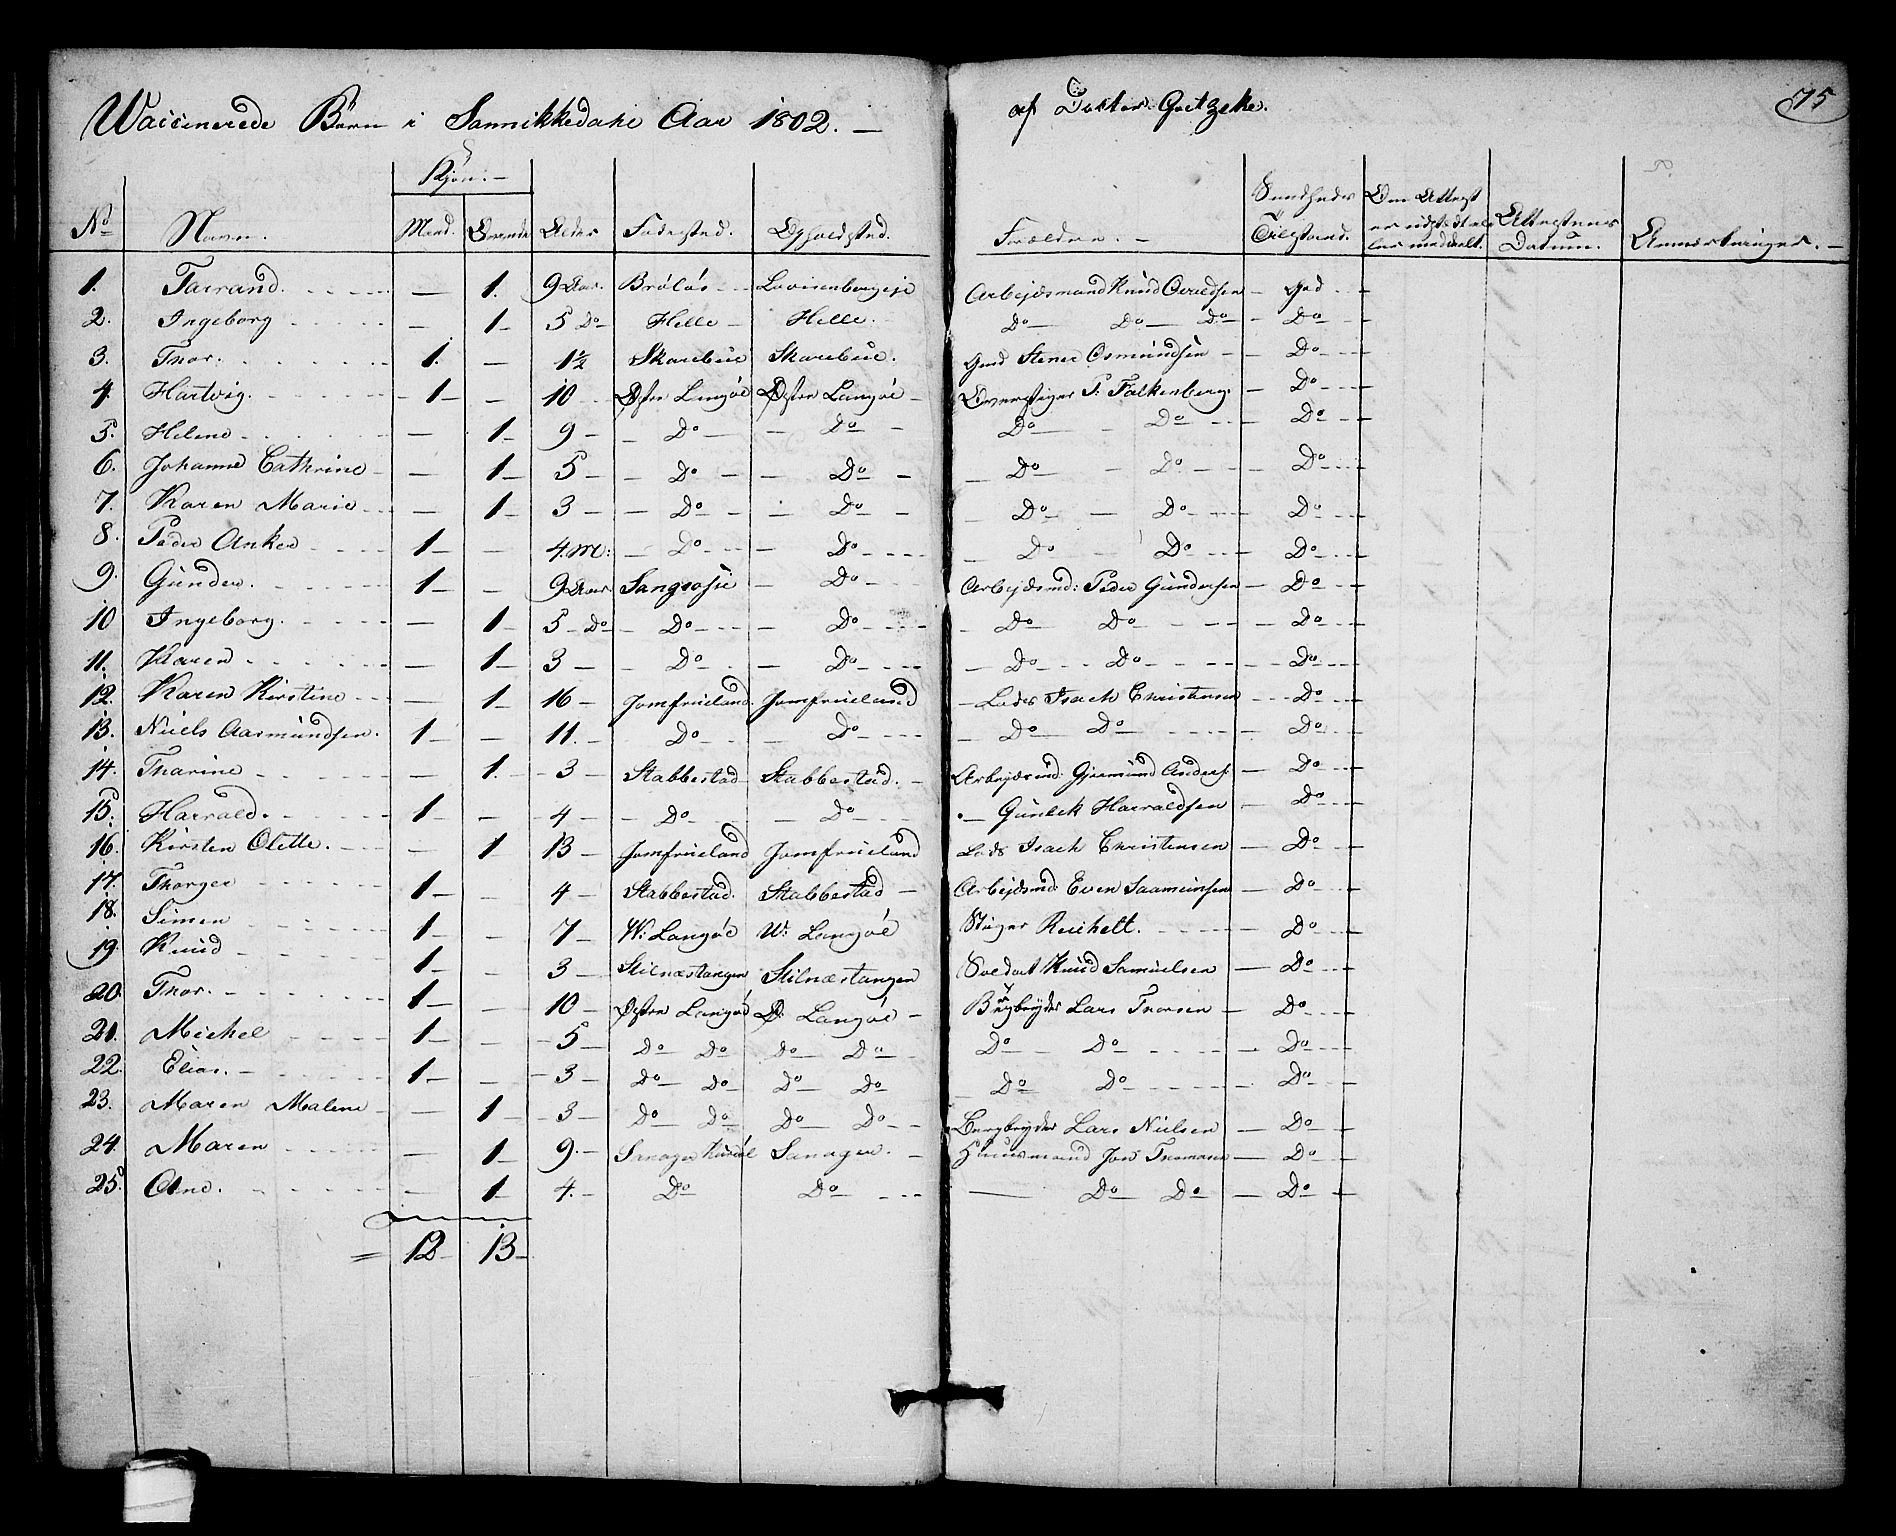 Waccinerede Børn i Sannikkedahl Aar 1802. — af Docter Goetzeke. 75
Kjøn. —
No Navn. Mand. Qvinde Alder Fødested. Opholdsted. Forældre. — Sundheds Tilstand. Om Attest er udstedt el ler meddeelt. Attestens Datum. Anmerkninger. —
1. Tarrand. — 1. 9 Aar. Bråläs Lovisenbergeje Arbejdsmand Knud — God
2. Ingeborg — 1 — 5 Do Helle — Helle. Do — Do — Do — Do —
3. Thor. 1. — 1½ Skarebue Skarebue. Gmd Stener Osmundsen — Do
4. Hartvig. 1 — 10 Østre Langøe Østre Langøe — Overstiger P: Falkenberg. — Do
5. Helene — 1 — 9 — Do — Do — Do — Do — Do
6. Johanne Cathrine — 1 — 5 — Do — Do — Do — Do — Do
7. Karen Marie — 1 — 3 — Do — Do — Do — Do — Do
8. Peder Anker 1 — 4. M: — Do — Do — Do Do — Do
9. Gunder. 1 — 9 Aar Do — Arbejdsmd: Peder Gundersen — Do
10 Ingeborg. — 1 — 5 — Do — Do — Do — Do Do — Do
11. Karen — 1 — 3 — Do — Do — Do Do — Do
12. Karen Kirstine — 1 — 16 — Jomfrueland. Jomfrueland — Lods Isach Christensen Do
13. Niels Aasmundsen. 1 — 11. — Do — Do — Do Do — Do
14. Tharine — 1. — 3 — Stabbestad Stabbestad. — Arbejdsmd: Gjermund Anders: — Do
15. Harrald. 1 — 4 — Do — Do — Gunlek Harraldsen — Do
16. Kirsten Olette. — 1 13 — Jomfrueland Jomfrueland Lods Isach Christensen — Do
17. Thorger 1 — 4 — Stabbestad. Stabbestad — Arbejdsmd: Even Saamunsen — Do
18. Simen 1 — 7 — W: Langøe W: Langøe Stiger Reichelt. — Do
19. Knud 1 — 3 — Stilnæstangen Stilnæstangen Soldat Knud Samuelsen — Do
20. Thor. 1 — 10 — Østre Langøe Ø. Langøe — Bergbryder Lars Thorsen — Do
21. Michel 1 — 5 — Do Do Do Do — Do — Do — Do
22. Elias. 1 — 3 — Do — Do Do — Do Do Do — Do
23. Maren Malene — 1 — 3 — Do Do — Do — Do — Bergbryder Lars Nielsen — Do
24. Maren — 1 — 9. — Husmand Jon Thomasen — Do
25. Ane. — 1 — 4. — Do Do — Do — Do — Do
= 12 13 —